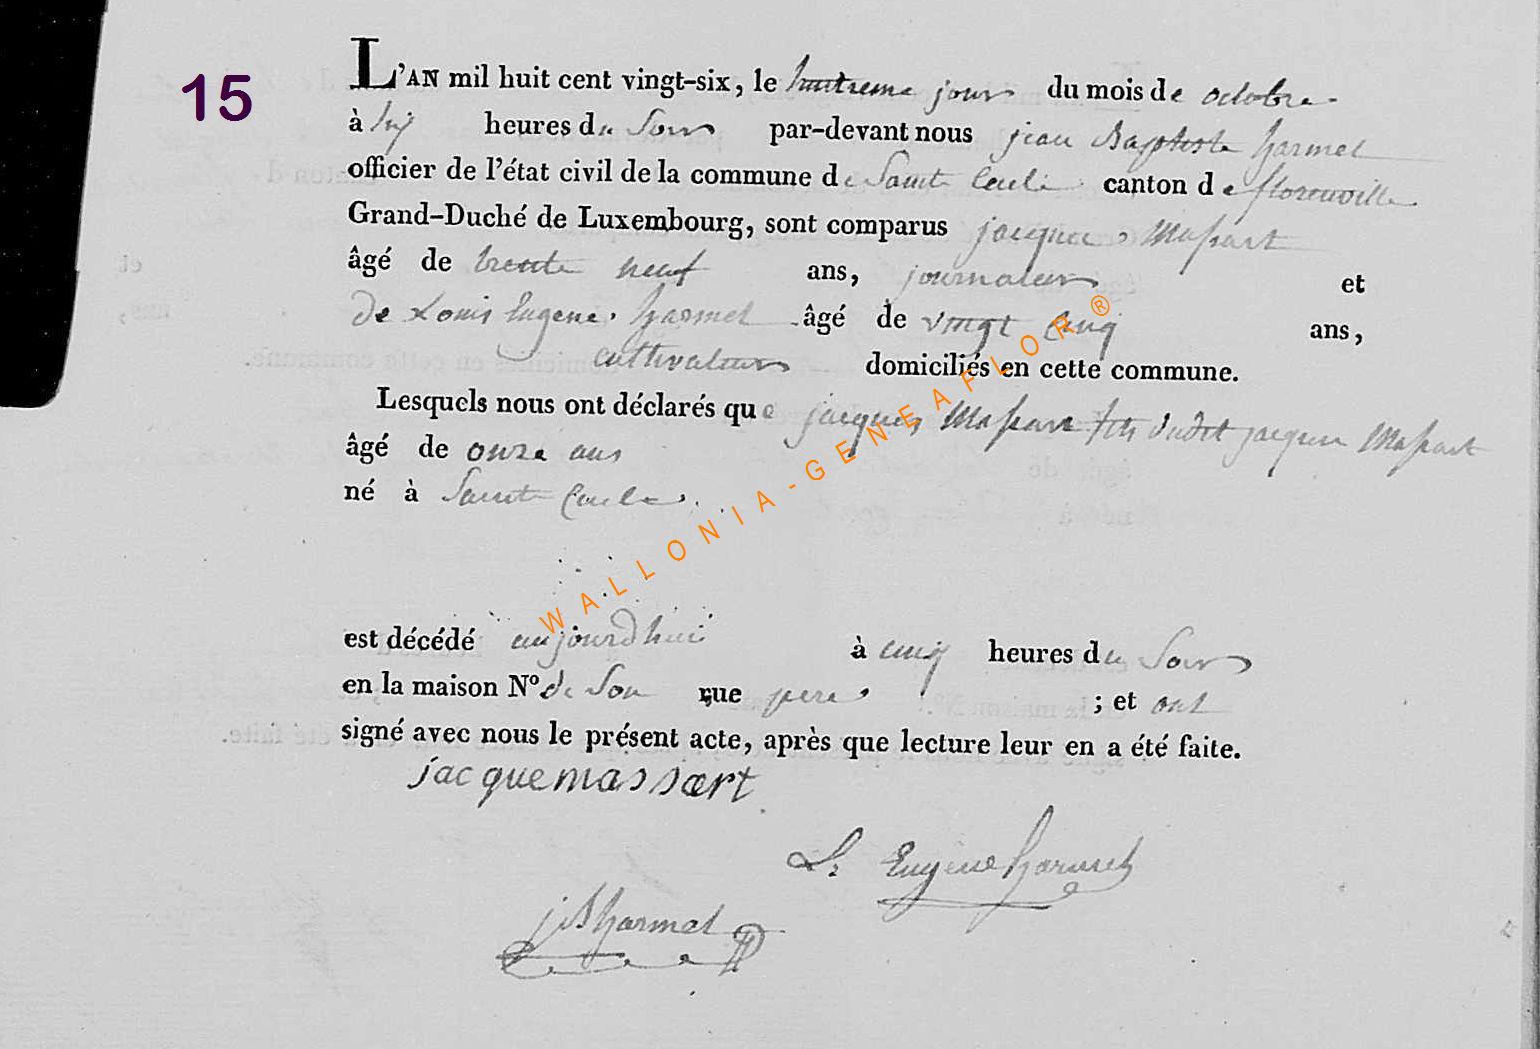 15
L'AN mil huit cent vingt-six, le huitieme jour du mois de octobre
à six heures du Soir par-devant nous jean Baptiste harmel
officier de l'état civil de la commune de Sainte Cecile canton de florenville
Grand-Duché de Luxembourg, sont comparus jacques Massart
âgé de trente neuf ans, journalier et
de Louis Eugene harmel âgé de vingt cinq ans,
cultivateur domiciliés en cette commune.
Lesquels nous ont déclarés que jacques Massart fils dudit jacques Massart
âgé de onze ans
né à Sainte Cecile
est décédé aujourdhui à cinq heures du Soir
en la maison Nº de Son rue pere ; et ont
signé avec nous le présent acte, après que lecture leur en a été faite.
jacque massart
L. Eugène harmel
jB harmel
WALLONIA-GENEAFLOR ®